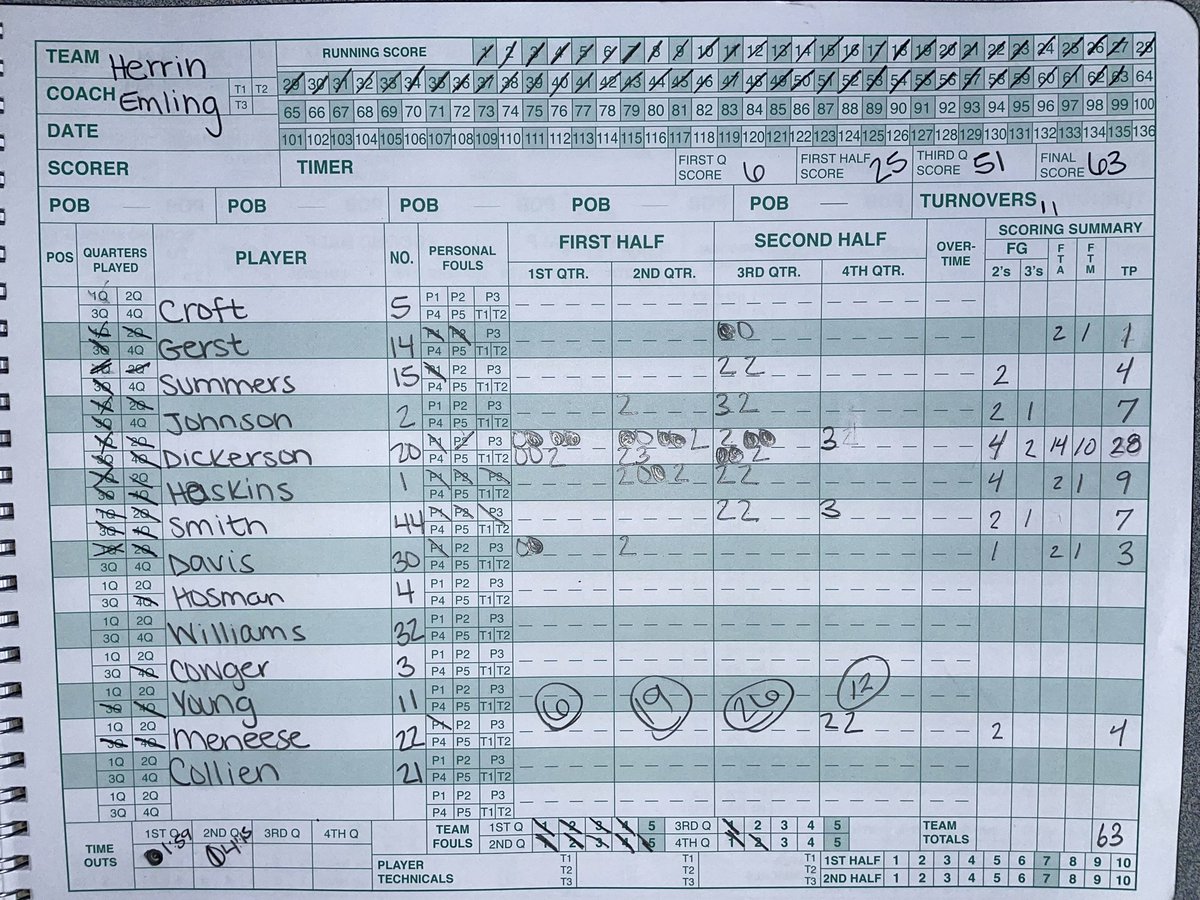 TEAM Herrin RUNNING SCORE 1 2 3 4 5 6 7 8 9 10 11 12 13 14 15 16 17 18 19 20 21 22 23 24 25 26 27 28
COACH Emling T1 T2 T3 29 30 31 32 33 34 35 36 37 38 39 40 41 42 43 44 45 46 47 48 49 50 51 52 53 54 55 56 57 58 59 60 61 62 63 64
65 66 67 68 69 70 71 72 73 74 75 76 77 78 79 80 81 82 83 84 85 86 87 88 89 90 91 92 93 94 95 96 97 98 99 100
DATE 101 102 103 104 105 106 107 108 109 110 111 112 113 114 115 116 117 118 119 120 121 122 123 124 125 126 127 128 129 130 131 132 133 134 135 136
SCORER TIMER FIRST Q SCORE 6 FIRST HALF SCORE 25 THIRD Q SCORE 51 FINAL SCORE 63
POB POB POB POB POB TURNOVERS 11
POS QUARTERS PLAYED PLAYER NO. PERSONAL FOULS FIRST HALF SECOND HALF OVER-TIME SCORING SUMMARY
1ST QTR. 2ND QTR. 3RD QTR. 4TH QTR. FG 2's 3's FTA FTM TP
1Q 2Q 3Q 4Q Croft 5 P1 P2 P3 P4 P5 T1 T2
1Q 2Q 3Q 4Q Gerst 14 P1 P2 P3 P4 P5 T1 T2 2 1 1
1Q 2Q 3Q 4Q Summers 15 P1 P2 P3 P4 P5 T1 T2 2 2 2 4
1Q 2Q 3Q 4Q Johnson 2 P1 P2 P3 P4 P5 T1 T2 2 3 2 2 1 7
1Q 2Q 3Q 4Q Dickerson 20 P1 P2 P3 P4 P5 T1 T2 2 2 2 3 2 2 3 4 2 14 10 28
1Q 2Q 3Q 4Q Haskins 1 P1 P2 P3 P4 P5 T1 T2 2 0 0 2 2 2 4 2 1 9
1Q 2Q 3Q 4Q Smith 44 P1 P2 P3 P4 P5 T1 T2 2 2 3 2 1 7
1Q 2Q 3Q 4Q Davis 30 P1 P2 P3 P4 P5 T1 T2 2 1 2 1 3
1Q 2Q 3Q 4Q Hosman 4 P1 P2 P3 P4 P5 T1 T2
1Q 2Q 3Q 4Q Williams 32 P1 P2 P3 P4 P5 T1 T2
1Q 2Q 3Q 4Q Cowger 3 P1 P2 P3 P4 P5 T1 T2
1Q 2Q 3Q 4Q Young 11 P1 P2 P3 P4 P5 T1 T2 6 19 26 12
1Q 2Q 3Q 4Q Meneese 22 P1 P2 P3 P4 P5 T1 T2 2 2 2 4
1Q 2Q 3Q 4Q Collien 21 P1 P2 P3 P4 P5 T1 T2
1Q 2Q 3Q 4Q P1 P2 P3 P4 P5 T1 T2
TIME OUTS 1ST Q 1:59 2ND Q 4:15 3RD Q 4TH Q
TEAM FOULS 1ST Q 1 2 3 4 5 3RD Q 1 2 3 4 5 TEAM TOTALS 63
2ND Q 1 2 3 4 5 4TH Q 1 2 3 4 5
PLAYER TECHNICALS T1 T2 T3 T1 T2 T3 T1 T2 T3 1ST HALF 1 2 3 4 5 6 7 8 9 10
2ND HALF 1 2 3 4 5 6 7 8 9 10